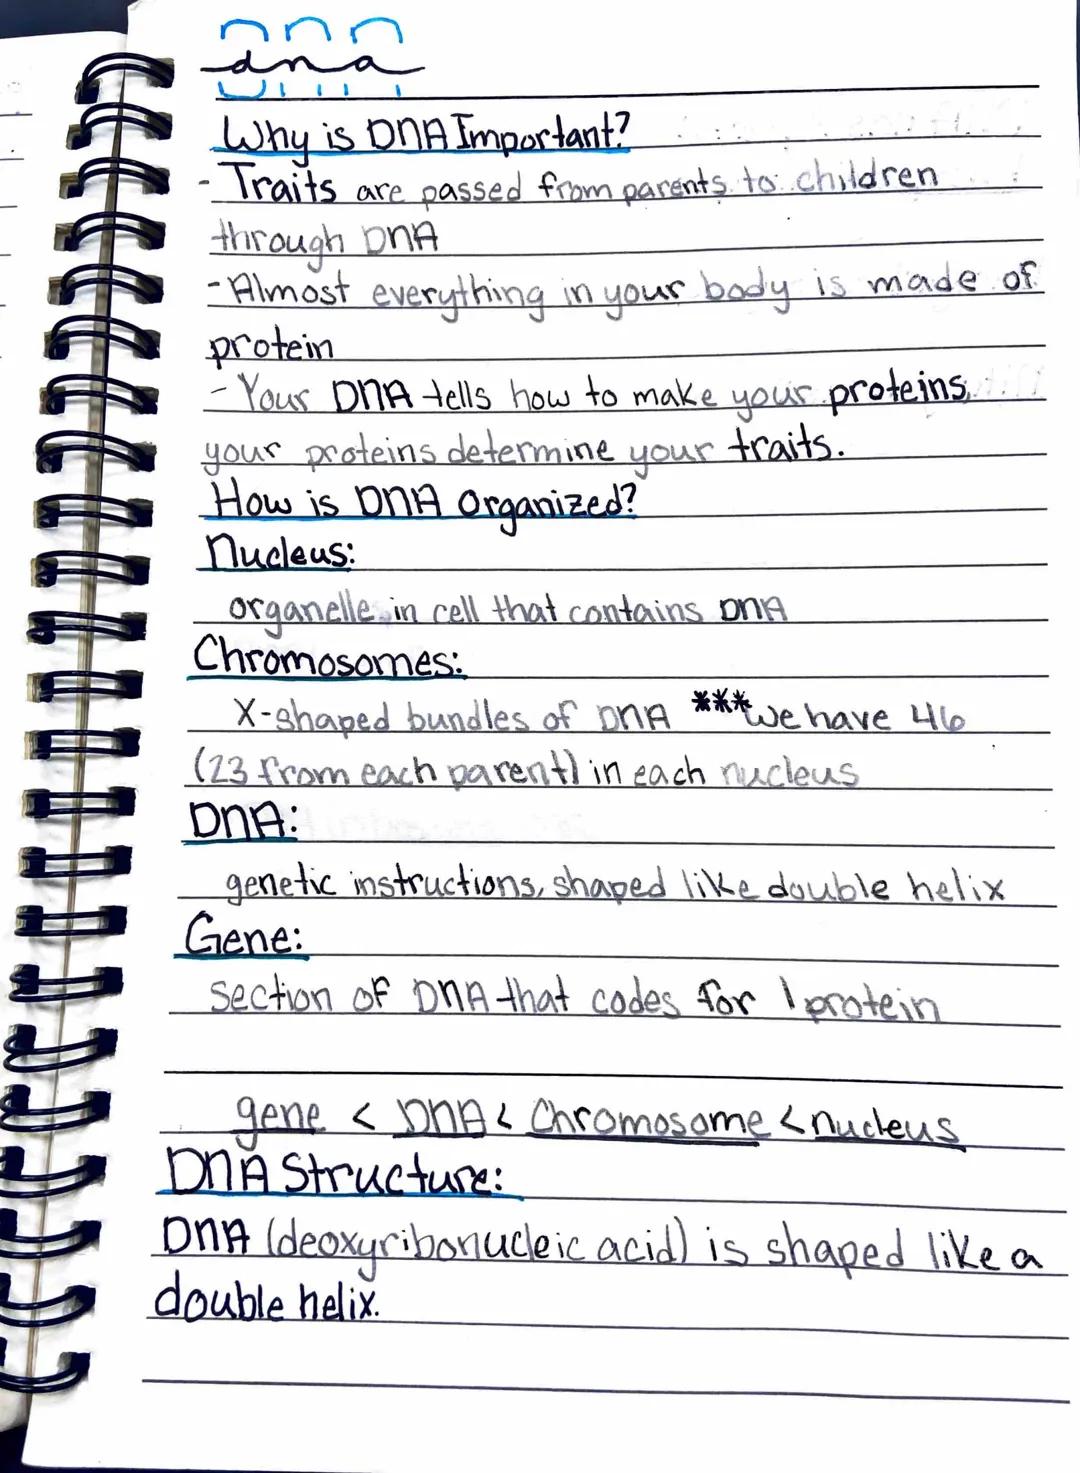 dna
Why is DNA Important?
- Traits are passed from parents to children
through DNA
- Almost everything in your body is made of
protein
- Your DNA tells how to make your proteins,
your proteins determine your traits.
How is DNA organized?
Nucleus:
organelle in cell that contains DNA
Chromosomes:
X-shaped bundles of DNA ***We have 46
(23 from each parent) in each nucleus
DNA:
genetic instructions, shaped like double helix
Gene:
section of DNA that codes for 1 protein
gene < DNA < Chromosome < nucleus
DNA Structure:
DNA (deoxyribonucleic acid) is shaped like a
double helix.